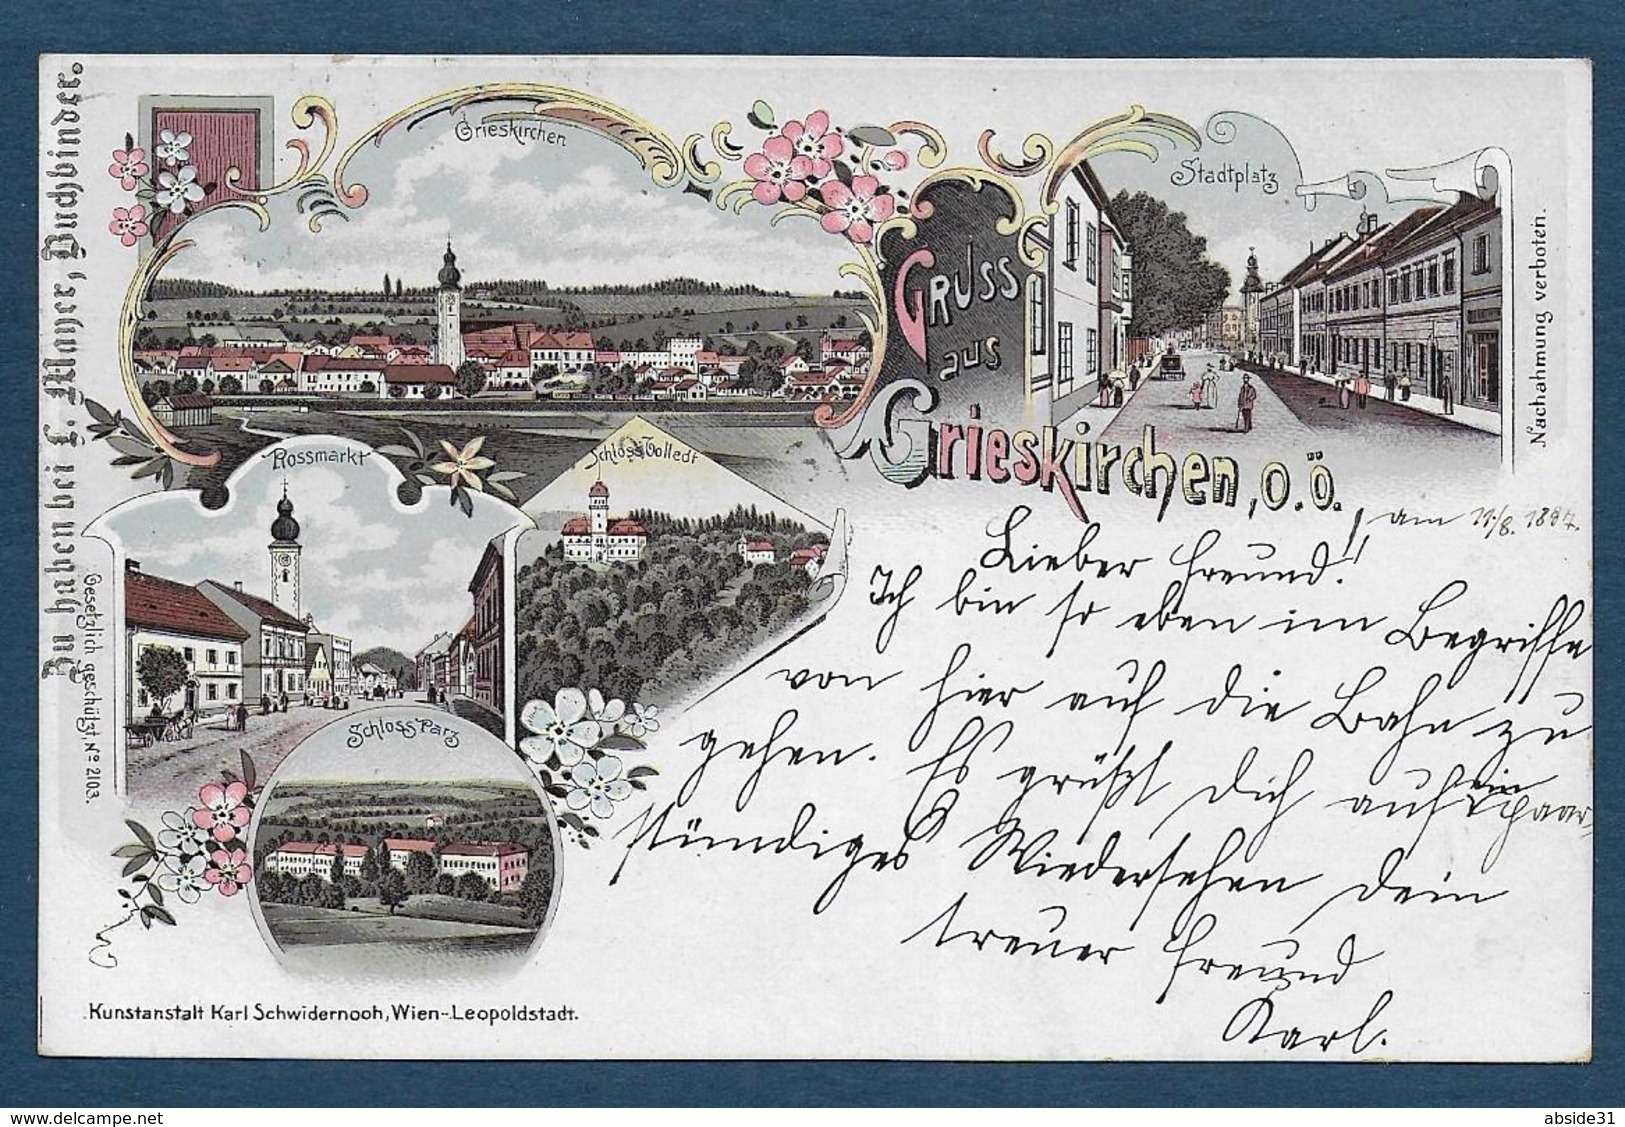 Zu haben bei L. Mayer, Buchbinder.
Grieskirchen
Stadtplatz
Gruss
aus
Grieskirchen, O.Ö.
Nachahmung verboten.
Rossmarkt
Schloss Tolledt
Schloss Parz
Gesetzlich geschützt No 2103.
am 11./8. 1897.
Lieber Freund!!
Ich bin so eben im Begriffe
von hier auf die Bahn zu
gehen. Es grüßt Dich auf ein paar
stündiges Wiedersehen Dein
treuer Freund
Karl.
Kunstanstalt Karl Schwidernoch, Wien-Leopoldstadt.
www.delcampe.net
abside31